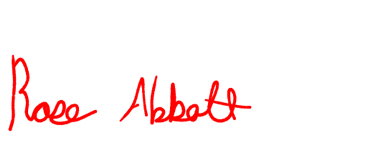 Rose Abbott